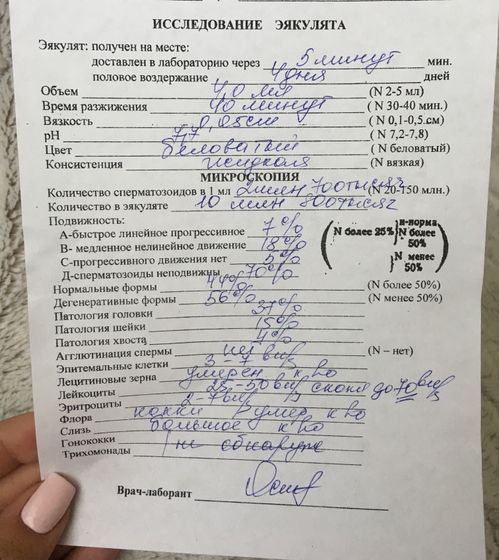 ИССЛЕДОВАНИЕ ЭЯКУЛЯТА
Эякулят: получен на месте:
доставлен в лабораторию через 5 минут мин.
половое воздержание 4 дня дней
Объем 4,0 мл (N 2-5 мл)
Время разжижения 40 минут (N 30-40 мин.)
Вязкость 0,05см (N 0,1-0,5.см)
pH 7,7 (N 7,2-7,8)
Цвет беловатый (N беловатый)
Консистенция жидкая (N вязкая)
МИКРОСКОПИЯ
Количество сперматозоидов в 1 мл 2 млн 700 тысяч (N 20-150 млн.)
Количество в эякуляте 10 млн 800 тысяч
Подвижность:
А-быстрое линейное прогрессивное 7% (N более 25%) н-норма
В- медленное нелинейное движение 18% N более 50%
С-прогрессивного движения нет 5% N менее 50%
Д-сперматозоиды неподвижны 70%
Нормальные формы 44% (N более 50%)
Дегенеративные формы 56% (N менее 50%)
Патология головки 37%
Патология шейки 15%
Патология хвоста 4%
Агглютинация спермы нет (N – нет)
Эпитемальные клетки 3-7 в п/з
Лецитиновые зерна умерен к-во
Лейкоциты 25-50 в п/з скопл до 70 в п/з
Эритроциты 2-7 в п/з
Флора кокки умер к-во
Слизь большое к-во
Гонококки
Трихомонады не обнаруж
Врач-лаборант